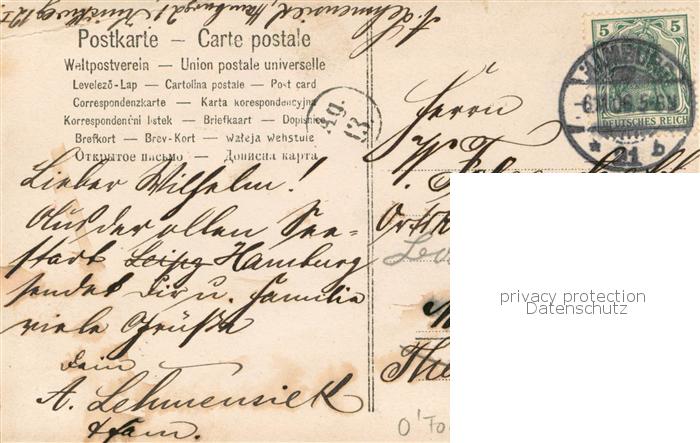 A. Lehmensiek, Hamburg 21
Postkarte — Carte postale
Weltpostverein — Union postale universelle
Levelező-Lap — Cartolina postale — Post card
Correspondenzkarte — Karta korespondencyjna
Korrespondenční listek — Briefkaart — Dopisnice
Brefkort — Brev-Kort
Открытое письмо — Дописна карта
5 5
DEUTSCHES REICH
HAMBURG
-6.11.06.5-6N
* 21 b
Ag.
13
Herrn
W.
Lieber Wilhelm!
Aus der ollen See-
stadt Leipz Hamburg
sendet dir u. Familie
viele Grüße
dein
A. Lehmensiek
& Fam.
privacy protection
Datenschutz